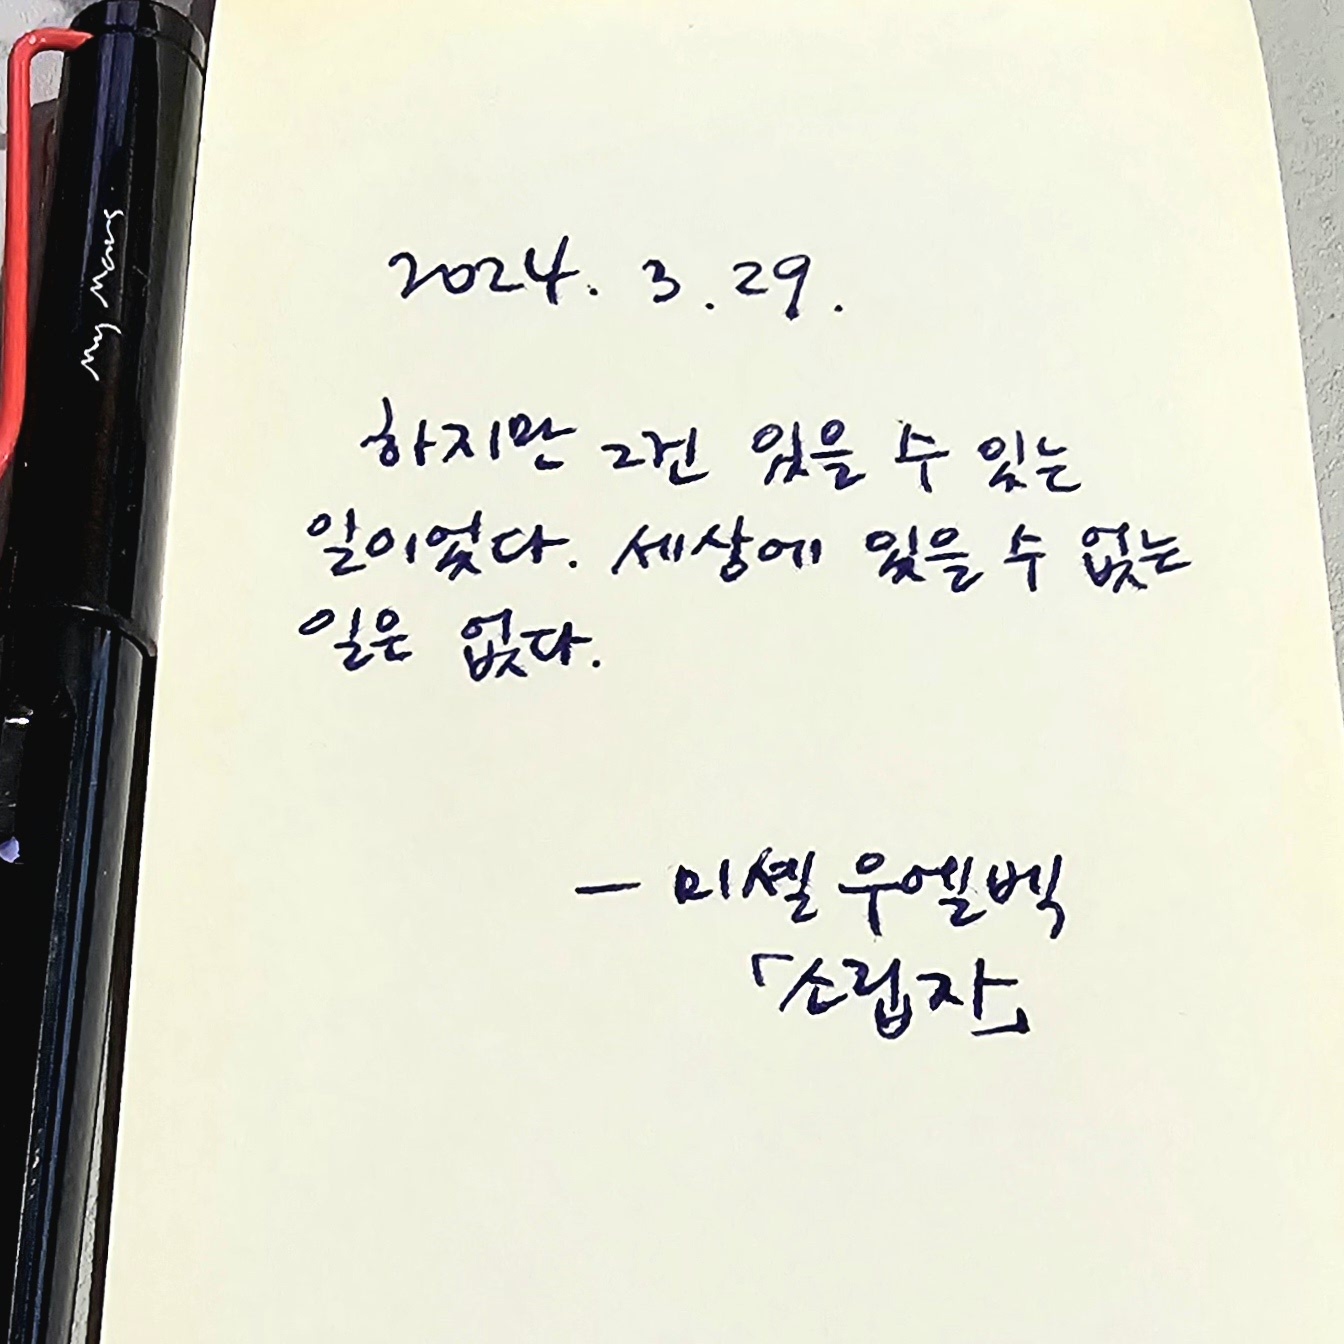 2024. 3. 29.
하지만 그건 있을 수 있는
일이었다. 세상에 있을 수 없는
일은 없다.
— 미셸 우엘벡
「소립자」
My Mars.